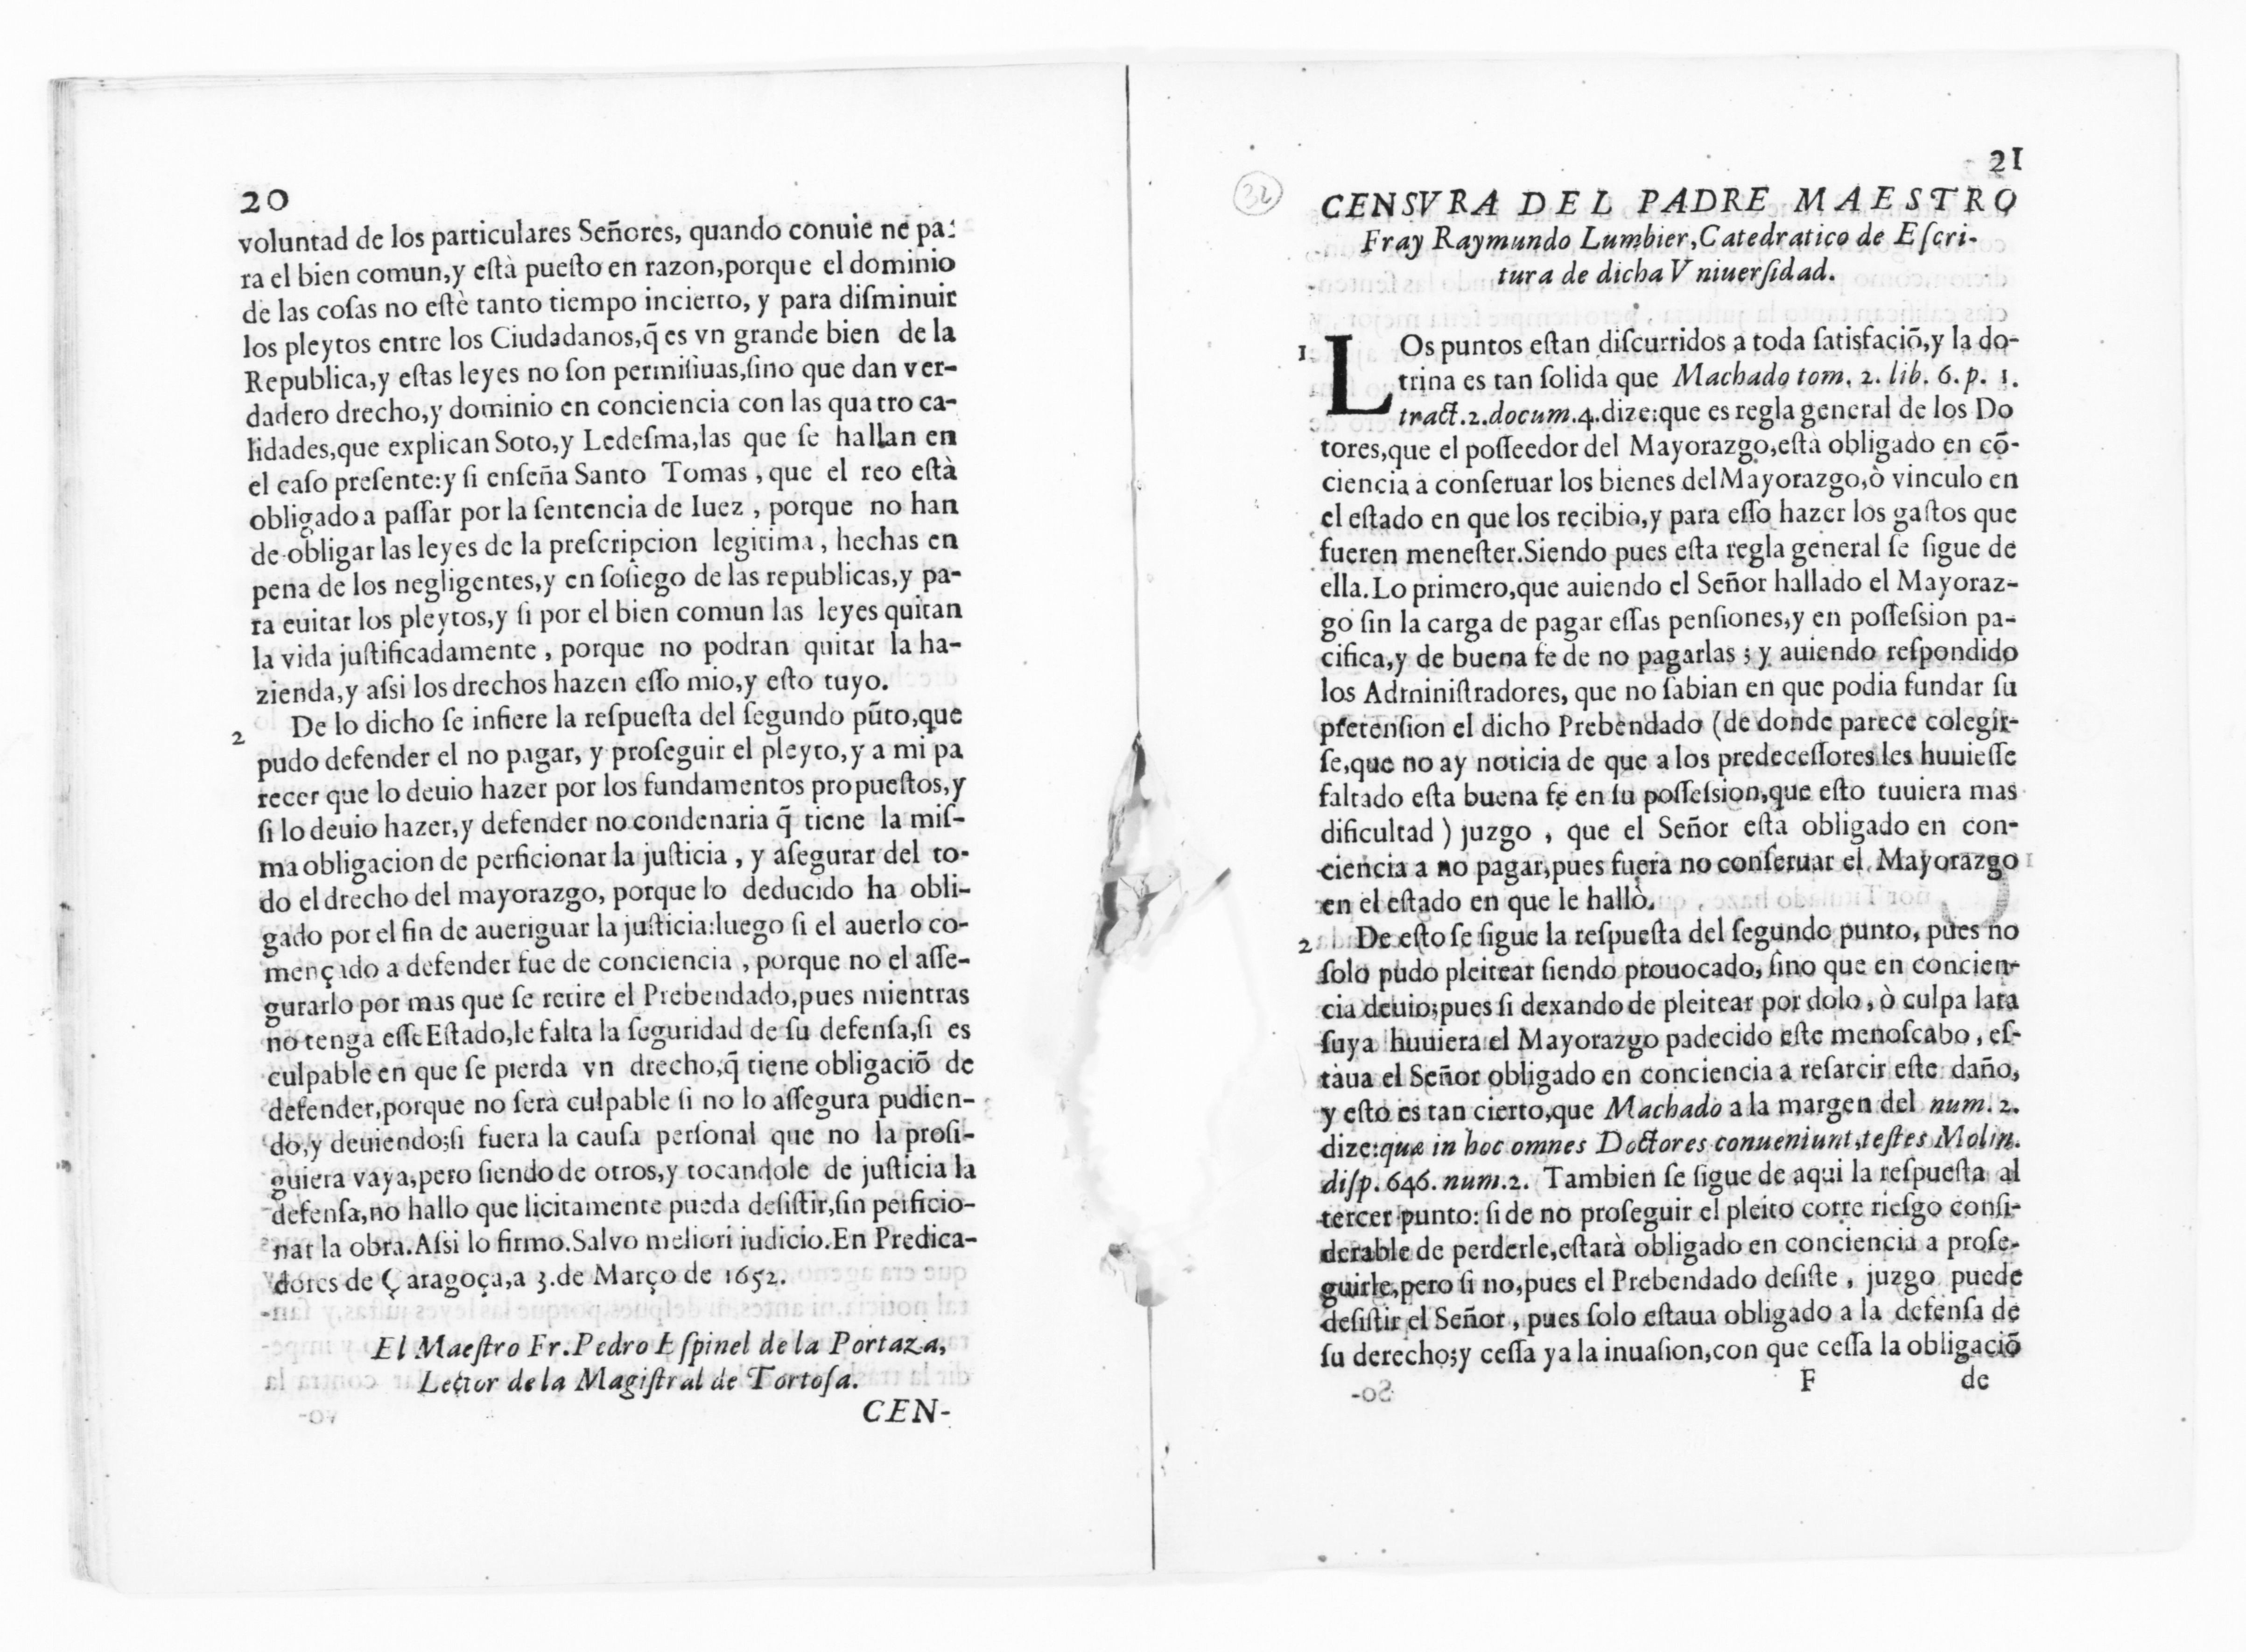 20
voluntad de los particulares Señores, quando conuie ne pa-
ra el bien comun,y està puesto en razon,porque el dominio
de las cosas no estè tanto tiempo incierto, y para disminuir
los pleytos entre los Ciudadanos,q̃ es vn grande bien de la
Republica,y estas leyes no son permisiuas,sino que dan ver-
dadero drecho,y dominio en conciencia con las quatro ca-
lidades,que explican Soto,y Ledesma,las que se hallan en
el caso presente:y si enseña Santo Tomas , que el reo està
obligado a passar por la sentencia de Iuez , porque no han
de obligar las leyes de la prescripcion legitima , hechas en
pena de los negligentes,y en sosiego de las republicas,y pa-
ra euitar los pleytos,y si por el bien comun las leyes quitan
la vida justificadamente , porque no podran quitar la ha-
zienda,y assi los drechos hazen esso mio,y esto tuyo.
2 De lo dicho se infiere la respuesta del segundo pũto,que
pudo defender el no pagar, y proseguir el pleyto,y a mi pa
recer que lo deuio hazer por los fundamentos propuestos,y
si lo deuio hazer,y defender no condenaria q̃ tiene la mis-
ma obligacion de perficionar la justicia , y asegurar del to-
do el drecho del mayorazgo, porque lo deducido ha obli-
gado por el fin de aueriguar la justicia:luego si el auerlo co-
mençado a defender fue de conciencia , porque no el asse-
gurarlo por mas que se retire el Prebendado,pues mientras
no tenga esse Estado,le falta la seguridad de su defensa,si es
culpable en que se pierda vn drecho,q̃ tiene obligaciõ de
defender,porque no serà culpable si no lo assegura pudien-
do,y deuiendo;si fuera la causa personal que no la prosi-
guiera vaya,pero siendo de otros,y tocandole de justicia la
defensa,no hallo que licitamente pueda desistir,sin perficio-
nar la obra.Assi lo firmo.Salvo meliori iudicio.En Predica-
dores de Çaragoça,a 3.de Março de 1652.
El Maestro Fr.Pedro Espinel de la Portaza,
Lector de la Magistral de Tortosa.
CEN-
32
21
CENSVRA DEL PADRE MAESTRO
Fray Raymundo Lumbier,Catedratico de Escri-
tura de dicha Vniuersidad.
1 LOs puntos estan discurridos a toda satisfaciõ,y la do-
trina es tan solida que Machado tom. 2. lib. 6. p. 1.
tract.2.docum.4.dize:que es regla general de los Do
tores,que el posseedor del Mayorazgo,està obligado en cõ-
ciencia a conseruar los bienes del Mayorazgo,ò vinculo en
el estado en que los recibio,y para esso hazer los gastos que
fueren menester.Siendo pues esta regla general se sigue de
ella.Lo primero,que auiendo el Señor hallado el Mayoraz-
go sin la carga de pagar essas pensiones,y en possession pa-
cifica,y de buena fe de no pagarlas ; y auiendo respondido
los Administradores, que no sabian en que podia fundar su
pretension el dicho Prebendado (de donde parece colegir-
se,que no ay noticia de que a los predecessores les huuiesse
faltado esta buena fe en su possession,que esto tuuiera mas
dificultad ) juzgo , que el Señor està obligado en con-
ciencia a no pagar,pues fuera no conseruar el Mayorazgo
en el estado en que le hallò.
2 De esto se sigue la respuesta del segundo punto, pues no
solo pudo pleitear siendo prouocado, sino que en concien-
cia deuio;pues si dexando de pleitear por dolo , ò culpa lata
suya huuiera el Mayorazgo padecido este menoscabo , es-
taua el Señor obligado en conciencia a resarcir este daño,
y esto es tan cierto,que Machado a la margen del num. 2.
dize:quæ in hoc omnes Doctores conueniunt,testes Molin.
disp. 646. num.2. Tambien se sigue de aqui la respuesta al
tercer punto: si de no proseguir el pleito corre riesgo consi-
derable de perderle,estarà obligado en conciencia a prose-
guirle,pero si no,pues el Prebendado desiste , juzgo puede
desistir el Señor , pues solo estaua obligado a la defensa de
su derecho;y cessa ya la inuasion,con que cessa la obligaciõ
F de